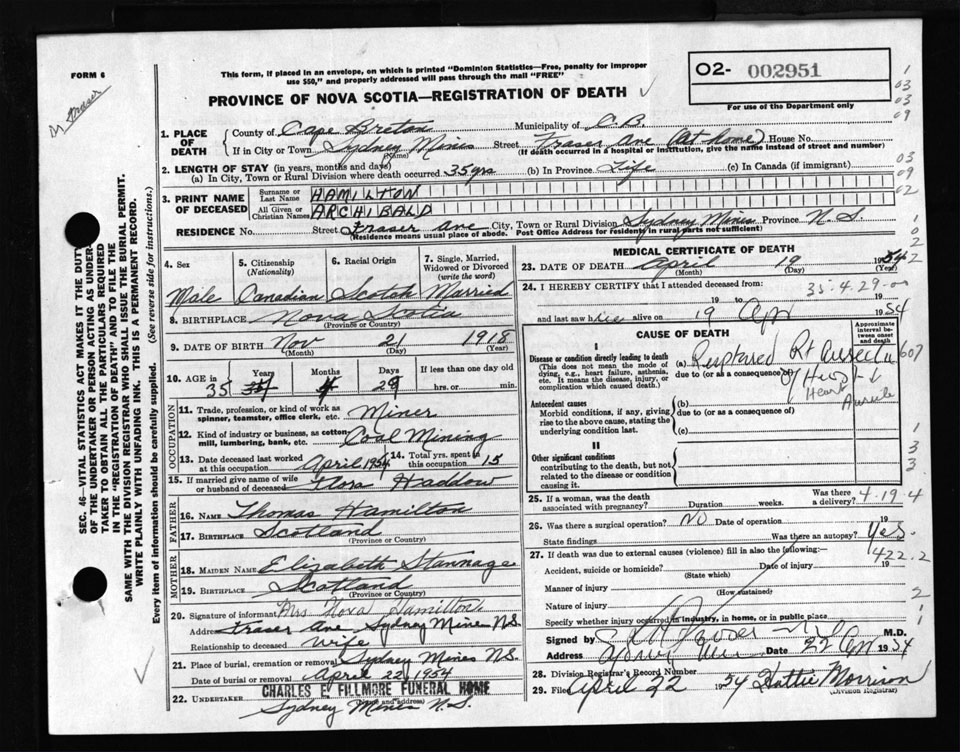 FORM 6
This form, if placed in an envelope, on which is printed "Dominion Statistics—Free, penalty for improper
use $50," and properly addressed will pass through the mail "FREE"
O2- 002951
For use of the Department only
PROVINCE OF NOVA SCOTIA—REGISTRATION OF DEATH
Fraser
1. PLACE OF DEATH
County of Cape Breton Municipality of C.B.
If in City or Town Sydney Mines Street Fraser Ave (At home) House No.
(Name) (If death occurred in a hospital or institution, give the name instead of street and number)
2. LENGTH OF STAY (in years, months and days)
(a) In City, Town or Rural Division where death occurred 35 yrs (b) In Province Life (c) In Canada (if immigrant)
3. PRINT NAME OF DECEASED
Surname or Last Name HAMILTON
All Given or Christian Names ARCHIBALD
RESIDENCE No. Street Fraser Ave City, Town or Rural Division Sydney Mines Province N.S.
(Residence means usual place of abode. Post Office Address for residents in rural parts not sufficient)
4. Sex
Male
5. Citizenship (Nationality)
Canadian
6. Racial Origin
Scotch
7. Single, Married, Widowed or Divorced (write the word)
Married
8. BIRTHPLACE Nova Scotia
(Province or Country)
9. DATE OF BIRTH Nov 21 1918
(Month) (Day) (Year)
10. AGE in Years Months Days If less than one day old
35 4 29 hrs. or min.
OCCUPATION
11. Trade, profession, or kind of work as spinner, teamster, office clerk, etc. Miner
12. Kind of industry or business, as cotton mill, lumbering, bank, etc. Coal Mining
13. Date deceased last worked at this occupation April 1954
14. Total yrs. spent in this occupation 15
15. If married give name of wife or husband of deceased Flora Haddow
FATHER
16. NAME Thomas Hamilton
17. BIRTHPLACE Scotland
(Province or Country)
MOTHER
18. MAIDEN NAME Elizabeth Stannage
19. BIRTHPLACE Scotland
(Province or Country)
20. Signature of informant Mrs Flora Hamilton
Address Fraser Ave Sydney Mines N.S.
Relationship to deceased Wife
21. Place of burial, cremation or removal Sydney Mines N.S.
Date of burial or removal April 22, 1954
22. UNDERTAKER CHARLES E. FILLMORE FUNERAL HOME
(Name and address)
Sydney Mines N.S.
MEDICAL CERTIFICATE OF DEATH
23. DATE OF DEATH April 19 1954
(Month) (Day) (Year)
24. I HEREBY CERTIFY that I attended deceased from
35-4-29
19 to 19
and last saw h alive on 19 Apr 1954
CAUSE OF DEATH
Approximate interval between onset and death
I
Disease or condition directly leading to death
(This does not mean the mode of dying, e.g., heart failure, asthma, etc. It means the disease, injury, or complication which caused death.)
(a) Ruptured Rt Auricle
due to (or as a consequence of)
of Heart
Heart Auricle
Antecedent causes
Morbid conditions, if any, giving rise to the above cause, stating the underlying condition last.
(b)
due to (or as a consequence of)
(c)
II
Other significant conditions
contributing to the death, but not related to the disease or condition causing it.
25. If a woman, was the death associated with pregnancy? Duration weeks. Was there a delivery?
4-19-4
26. Was there a surgical operation? No Date of operation 19
State findings Was there an autopsy? Yes.
27. If death was due to external causes (violence) fill in also the following:
422.2
Accident, suicide or homicide? Date of injury 19
(State which)
Manner of injury
(How sustained)
Nature of injury
Specify whether injury occurred in industry, in home, or in public place
Signed by M.D.
Address Date 22 Apr 1954
28. Division Registrar's Record Number
29. Filed April 22 1954 Hattie Morrison
(Division Registrar)
SEC. 46—VITAL STATISTICS ACT MAKES IT THE DUTY
OF THE UNDERTAKER OR PERSON ACTING AS UNDERTAKER TO OBTAIN ALL THE PARTICULARS REQUIRED
IN THE "REGISTRATION OF DEATH" AND TO FILE THE
SAME WITH THE DIVISION REGISTRAR WHO SHALL ISSUE THE BURIAL PERMIT.
WRITE PLAINLY WITH UNFADING INK. THIS IS A PERMANENT RECORD.
Every item of information should be carefully supplied. (See reverse side for instructions.)
1
03
03
09
03
09
02
1
0
2
2
607
1
3
3
2
1